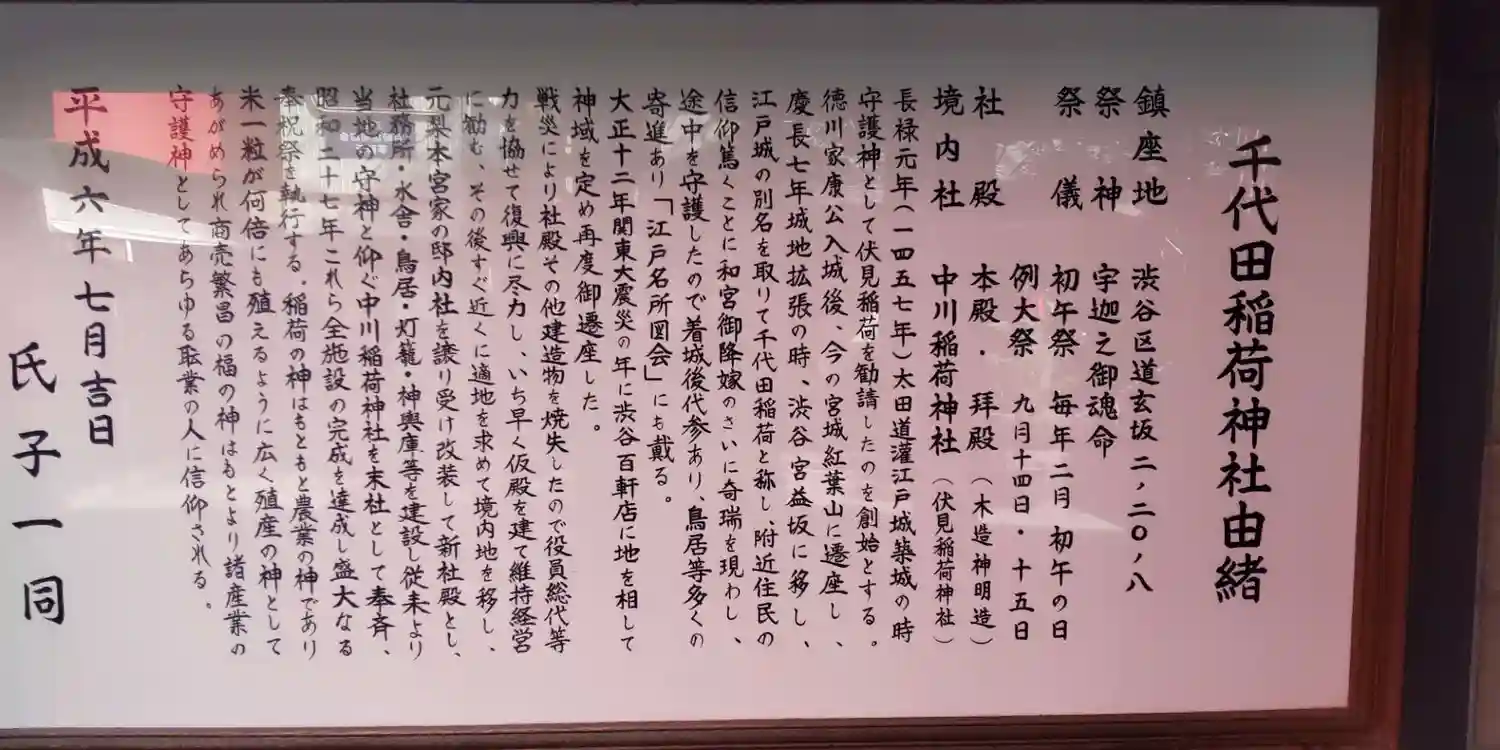 千代田稲荷神社由緒
鎮座地 渋谷区道玄坂二ノ二〇ノ八
祭神 宇迦之御魂命
祭儀 初午祭 毎年二月初午の日
例大祭 九月十四日・十五日
社殿 本殿・拝殿(木造神明造)
境内社 中川稲荷神社(伏見稲荷神社)
長禄元年(一四五七年)太田道灌江戸城築城の時
守護神として伏見稲荷を勧請したのを創始とする。
徳川家康公入城後、今の宮城紅葉山に遷座し、
慶長七年城地拡張の時、渋谷宮益坂に移し、
江戸城の別名を取りて千代田稲荷と称し、附近住民の
信仰篤くことに和宮御降嫁のさいに奇瑞を現わし、
途中を守護したので着城後代参あり、鳥居等多くの
寄進あり「江戸名所図会」にも戴る。
大正十二年関東大震災の年に渋谷百軒店に地を相して
神域を定め再度御遷座した。
戦災により社殿その他建造物を焼失したので役員総代等
力を協せて復興に尽力し、いち早く仮殿を建て維持経営
に勧む、その後すぐ近くに適地を求めて境内地を移し、
元梨本宮家の邸内社を譲り受け改装して新社殿とし、
社務所・水舎・鳥居・灯籠・神輿庫等を建設し従来より
当地の守神と仰ぐ中川稲荷神社を末社として奉斉、
昭和二十七年これら全施設の完成を達成し盛大なる
奉祝祭を執行する。稲荷の神はもともと農業の神であり
米一粒が何倍にも殖えるように広く殖産の神として
あがめられ商売繁昌の福の神はもとより諸産業の
守護神としてあらゆる職業の人に信仰される。
平成六年七月吉日
氏子一同